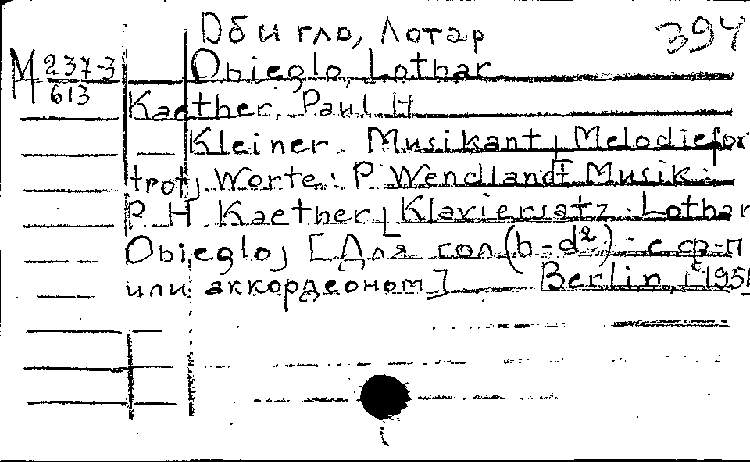 Обигло, Лотар 394
М 237-3
613
Obieglo, Lothar
Kaether, Paul H
Kleiner Musikant, Melodiefox
trot, Worte: P Wendlandt Musik:
P. H Kaether, Klaviersatz: Lothar
Obieglo, [Для гол (b-d²) с ф-п
или аккордеоном] Berlin, c 195